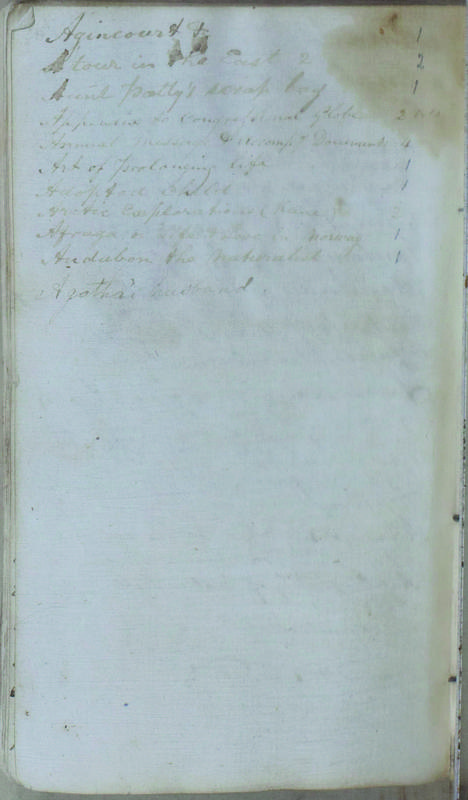 Agincourt 1
A tour in the East 2 2
Aunt Patty's scrap bag 1
Appendix to Congressional Globe 2
Annual Message & Documents 4
Art of Prolonging life 1
Adopted Child 1
Arctic Explorations Kane 2
Afraja or Life & Love in Norway 1
Audubon the Naturalist 1
husband